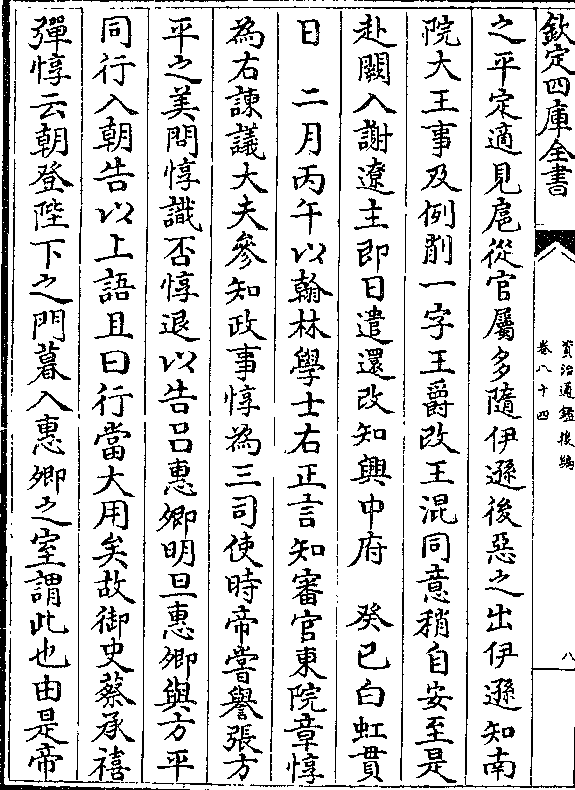 欽定四庫全書
資治通鑑後編
卷八十四
八
之平定適見扈從官屬多隨伊遜後惡之出伊遜知南
院大王事及例削一字王爵改王混同意稍自安至是
赴闕入謝遼主即日遣還改知興中府　癸巳白虹貫
日　二月丙午以翰林學士右正言知審官東院章惇
為右諫議大夫參知政事惇為三司使時帝嘗譽張方
平之美問惇識否惇退以告吕惠卿明旦惠卿與方平
同行入朝告以上語且曰行當大用矣故御史蔡承禧
彈惇云朝登陛下之門暮入惠卿之室謂此也由是帝